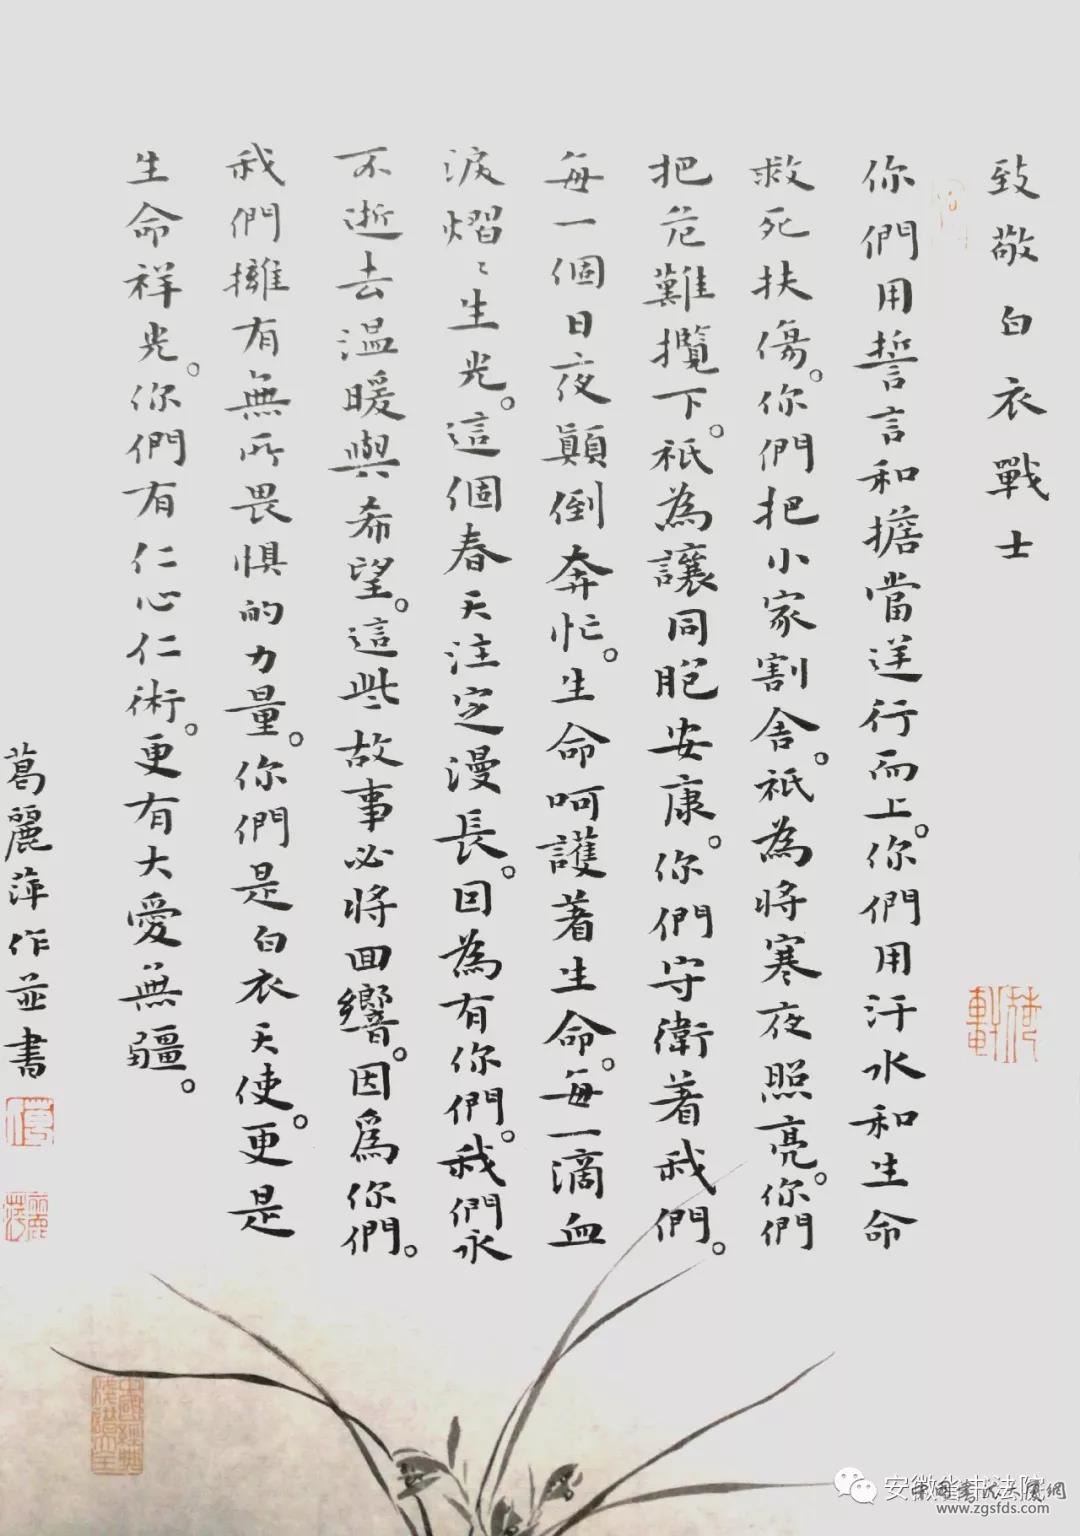 致敬白衣戰士
你們用誓言和擔當逆行而上。你們用汗水和生命
救死扶傷。你們把小家割舍。祇為將寒夜照亮。你們
把危難攬下。祇為讓同胞安康。你們守衛著我們。
每一個日夜顛倒奔忙。生命呵護著生命。每一滴血
淚熠〻生光。這個春天注定漫長。因為有你們。我們永
不逝去温暖與希望。這些故事必將回響。因為你們。
我們擁有無所畏懼的力量。你們是白衣天使。更是
生命祥光。你們有仁心仁術。更有大愛無疆。
葛麗萍作並書
安徽省书法院
www.zgsfds.com